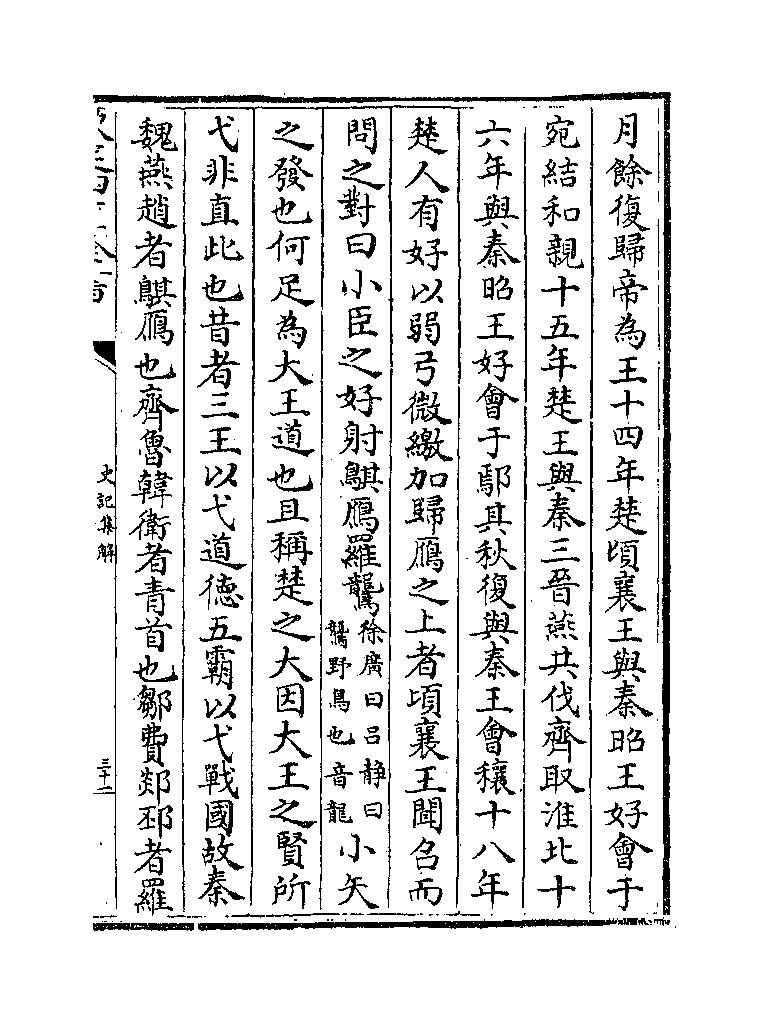 月餘復歸帝為王十四年楚頃襄王與秦昭王好會于
宛結和親十五年楚王與秦三晉燕共伐齊取淮北十
六年與秦昭王好會于鄢其秋復與秦王會穰十八年
楚人有好以弱弓微繳加歸鴈之上者頃襄王聞召而
問之對曰小臣之好射鶀鴈羅鸗徐廣曰呂静曰鸗野鳥也音龍小矢
之發也何足為大王道也且稱楚之大因大王之賢所
弋非直此也昔者三王以弋道徳五霸以弋戰國故秦
魏燕趙者鶀鴈也齊魯韓衛者青首也鄒費郯邳者羅
史記集解
三十二